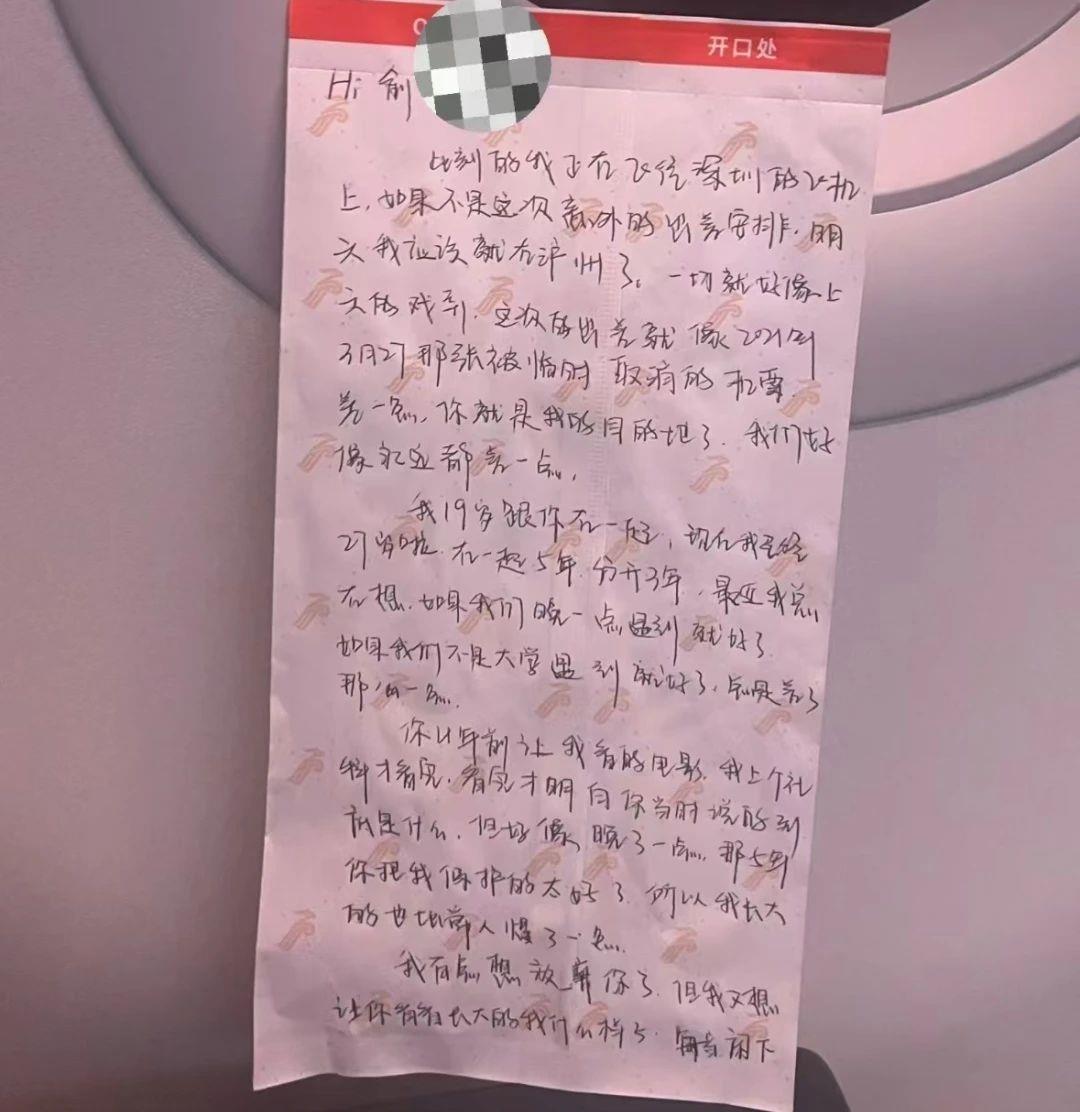 开口处
Hi 俞
此刻的我正在飞往深圳的飞机
上，如果不是这次意外的出差安排，明
天我应该就在泸州了。一切就好像上
天的戏弄，这次的出差就像2021年
3月27那张被临时取消的机票
差一点，你就是我的目的地了，我们好
像永远都差一点，
我19岁跟你在一起，现在我已经
27岁啦，在一起5年，分开3年，最近我总
在想，如果我们晚一点遇到就好了
如果我们不是大学遇到就好了，总是差了
那么一点
你几年前让我看的电影，我上个礼
拜才看完，看完才明白你当时说的到
底是什么，但好像晚了一点，那5年
你把我保护的太好了，所以我长大
的也比常人慢了一点
我有点想放弃你了，但我又想
让你看看长大的我什么样子，每当闭下